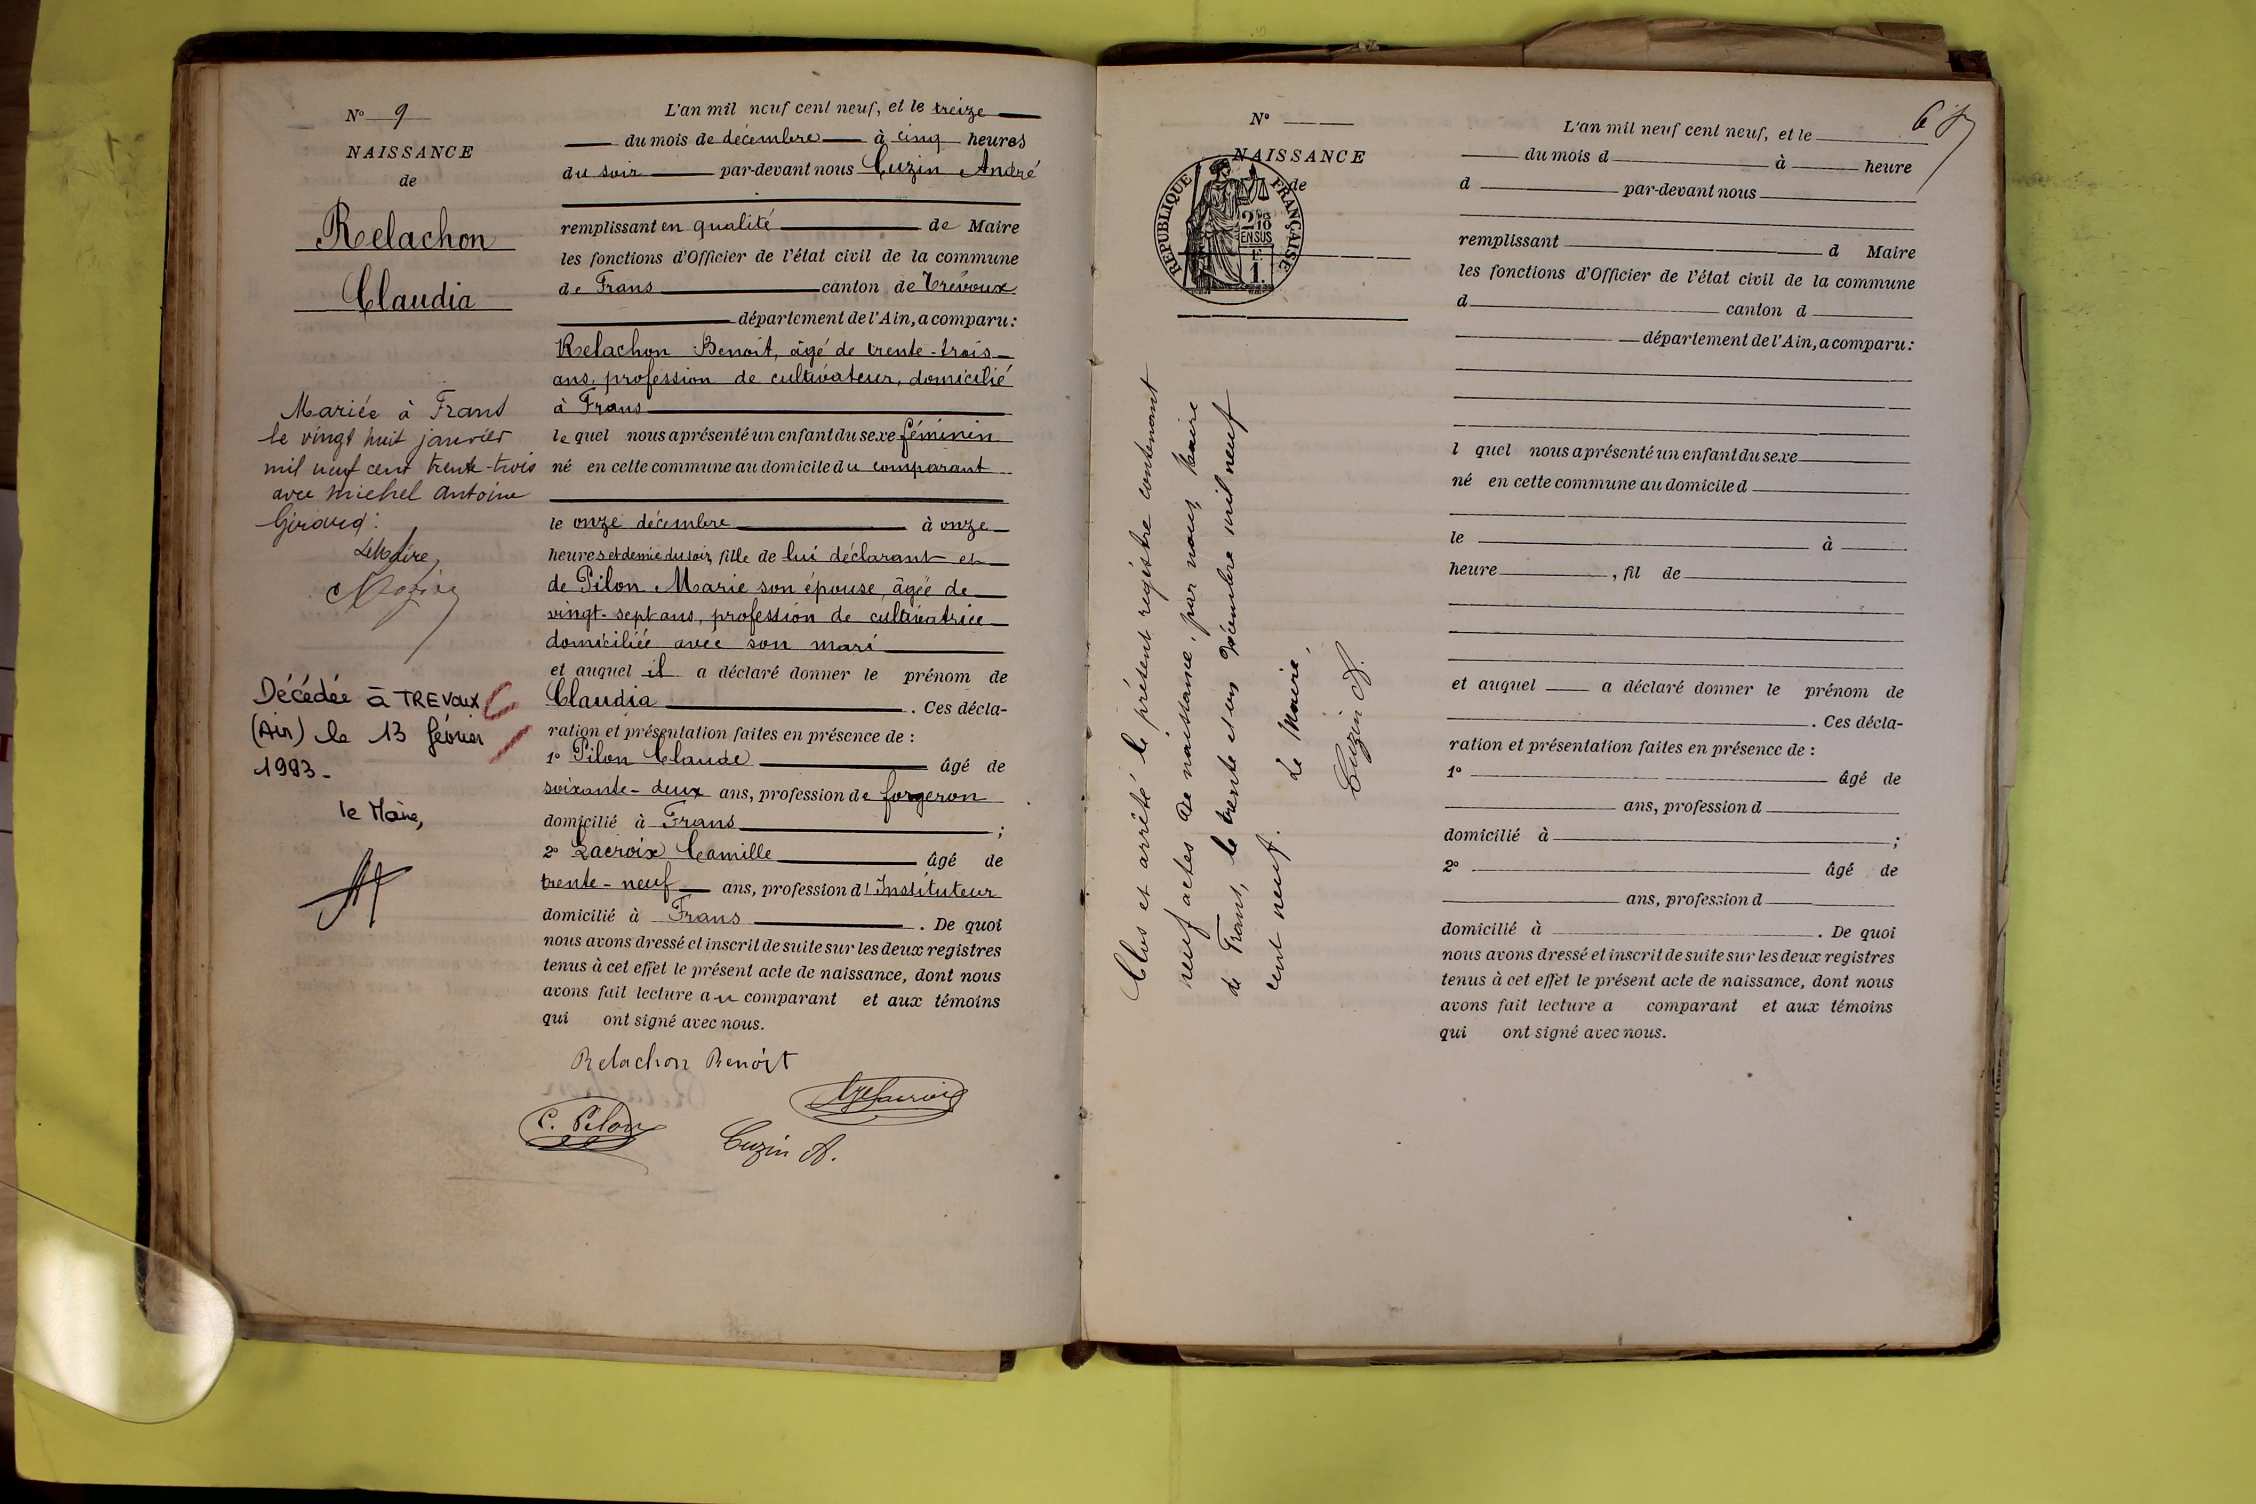 N° 9
NAISSANCE
de
Relachon
Claudia
Mariée à Frans
le vingt huit janvier
mil neuf cent trente-trois
avec Michel Antoine
Girard.
Le Maire,
Décédée à TREVOUX
(Ain) le 13 février
1993-
le Maire,
L'an mil neuf cent neuf, et le treize
du mois de décembre à cinq heures
du soir par-devant nous Cuzin André
remplissant en qualité de Maire
les fonctions d'Officier de l'état civil de la commune
de Frans canton de Trévoux
département de l'Ain, a comparu:
Relachon Benoit, âgé de trente-trois
ans, profession de cultivateur, domicilié
à Frans
lequel nous a présenté un enfant du sexe féminin
né en cette commune au domicile du comparant
le onze décembre à onze
heures et demie du soir, fille de lui déclarant et
de Pilon Marie son épouse, âgée de
vingt-sept ans, profession de cultivatrice
domiciliée avec son mari
et auquel il a déclaré donner le prénom de
Claudia . Ces décla-
ration et présentation faites en présence de :
1° Pilon Claude âgé de
soixante-deux ans, profession de forgeron
domicilié à Frans ;
2° Lacroix Camille âgé de
trente-neuf ans, profession d'Instituteur
domicilié à Frans . De quoi
nous avons dressé et inscrit de suite sur les deux registres
tenus à cet effet le présent acte de naissance, dont nous
avons fait lecture au comparant et aux témoins
qui ont signé avec nous.
Relachon Benoit
C. Pilon
Cuzin A.
N°
NAISSANCE
de
RÉPUBLIQUE FRANÇAISE
2/10
EN SUS
1
Clos et arrêté le présent registre contenant
neuf actes de naissance, par nous Maire
de Frans, le trente et un Décembre mil neuf
cent neuf.
Le Maire,
Cuzin A.
6
L'an mil neuf cent neuf, et le
du mois d à heure
d par-devant nous
remplissant d Maire
les fonctions d'Officier de l'état civil de la commune
d canton d
département de l'Ain, a comparu:
l quel nous a présenté un enfant du sexe
né en cette commune au domicile d
le à
heure , fil de
et auquel a déclaré donner le prénom de
. Ces décla-
ration et présentation faites en présence de :
1° âgé de
ans, profession d
domicilié à ;
2° âgé de
ans, profession d
domicilié à . De quoi
nous avons dressé et inscrit de suite sur les deux registres
tenus à cet effet le présent acte de naissance, dont nous
avons fait lecture a comparant et aux témoins
qui ont signé avec nous.